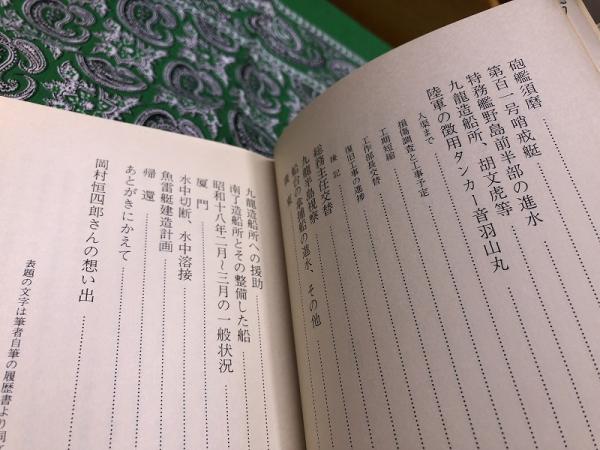 砲艦須磨
第百一号哨戒艇
特務艦野島前半部の進水
九龍造船所、胡文虎等
陸軍の徴用タンカー音羽山丸
入渠まで
損傷調査と工事予定
工期短縮
工作部長交替
復旧工事の進捗
後記
総務主任交替
九龍半島視察
船台の拿捕船の進水、その他
九龍造船所への援助
南了造船所とその整備した船
厦門
昭和十八年二月〜三月の一般状況
水中切断、水中溶接
魚雷艇建造計画
帰還
あとがきにかえて
岡村恒四郎さんの想い出
表題の文字は筆者自筆の履歴書より同